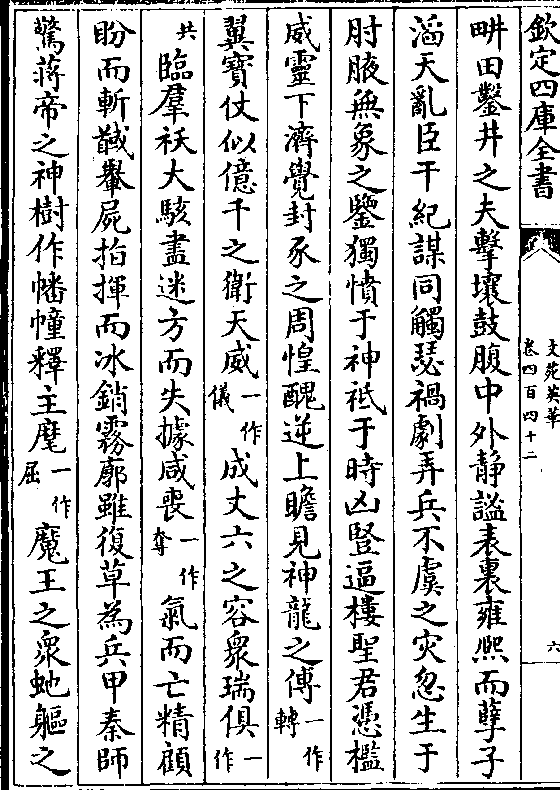 欽定四庫全書
文苑英華
卷四百四十二
六
畊田鑿井之夫擊壤鼓腹中外静謐表裏雍熈而孽子
滔天亂臣干紀謀同觸瑟禍劇弄兵不虞之灾忽生于
肘腋無象之鑒獨憤于神祇于時凶竪逼樓聖君憑檻
威靈下濟覺封豕之周惶醜逆上瞻見神龍之傳一作轉
翼寶仗似億千之衛天威一作儀成丈六之容衆瑞俱一作
共臨羣祅大駭盡迷方而失據咸喪一作奪氣而亡精顧
盼而斬馘轝屍指揮而冰銷霧廓雖復草為兵甲秦師
驚蔣帝之神樹作幡幢釋主麾一作屈魔王之衆虵軀之